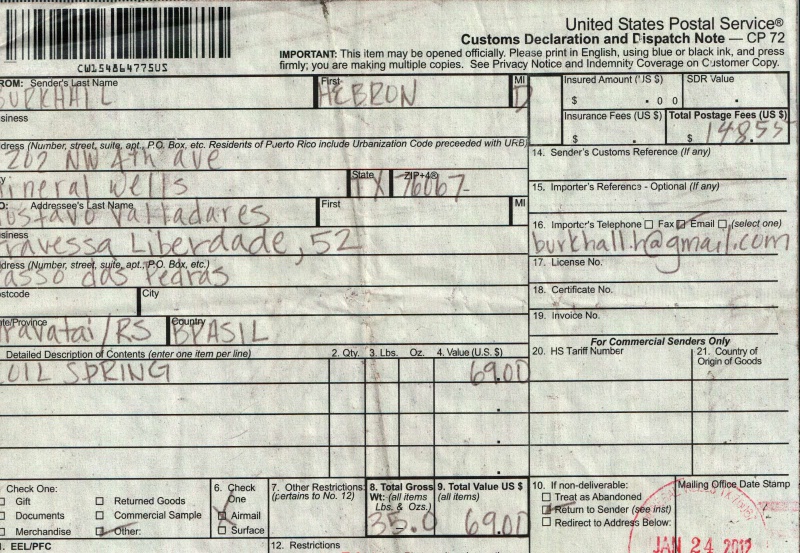 United States Postal Service®
Customs Declaration and Dispatch Note — CP 72
IMPORTANT: This item may be opened officially. Please print in English, using blue or black ink, and press
firmly; you are making multiple copies. See Privacy Notice and Indemnity Coverage on Customer Copy.
CW154864775US
ROM: Sender's Last Name First MI
BURKHALL HEBRON D
Insured Amount (US $) SDR Value
$ . 0 0 .
siness
Insurance Fees (US $) Total Postage Fees (US $)
$ . $ 148.55
dress (Number, street, suite, apt., P.O. Box, etc. Residents of Puerto Rico include Urbanization Code preceeded with URB)
202 NW 4th ave
14. Sender's Customs Reference (If any)
State ZIP+4®
ineral Wells TX 76067-
15. Importer's Reference - Optional (If any)
O: Addressee's Last Name First MI
ustavo Valladares
16. Importer's Telephone Fax Email (select one)
burkhall.h@gmail.com
siness
ravessa Liberdade, 52
dress (Number, street, suite, apt., P.O. Box, etc.)
asso das Pedras
17. License No.
18. Certificate No.
ostcode City
19. Invoice No.
ate/Province Country
ravatai/RS BRASIL
For Commercial Senders Only
20. HS Tariff Number 21. Country of
Origin of Goods
Detailed Description of Contents (enter one item per line) 2. Qty. 3. Lbs. Oz. 4. Value (U.S. $)
OIL SPRING 69.00
Check One:
Gift Returned Goods
Documents Commercial Sample
Merchandise Other:
6. Check
One
Airmail
Surface
7. Other Restrictions
(pertains to No. 12)
8. Total Gross
Wt: (all items
Lbs. & Ozs.)
35.0
9. Total Value US $
(all items)
69.00
10. If non-deliverable:
Treat as Abandoned
Return to Sender (see inst)
Redirect to Address Below:
Mailing Office Date Stamp
JAN 24 2012
. EEL/PFC
12. Restrictions